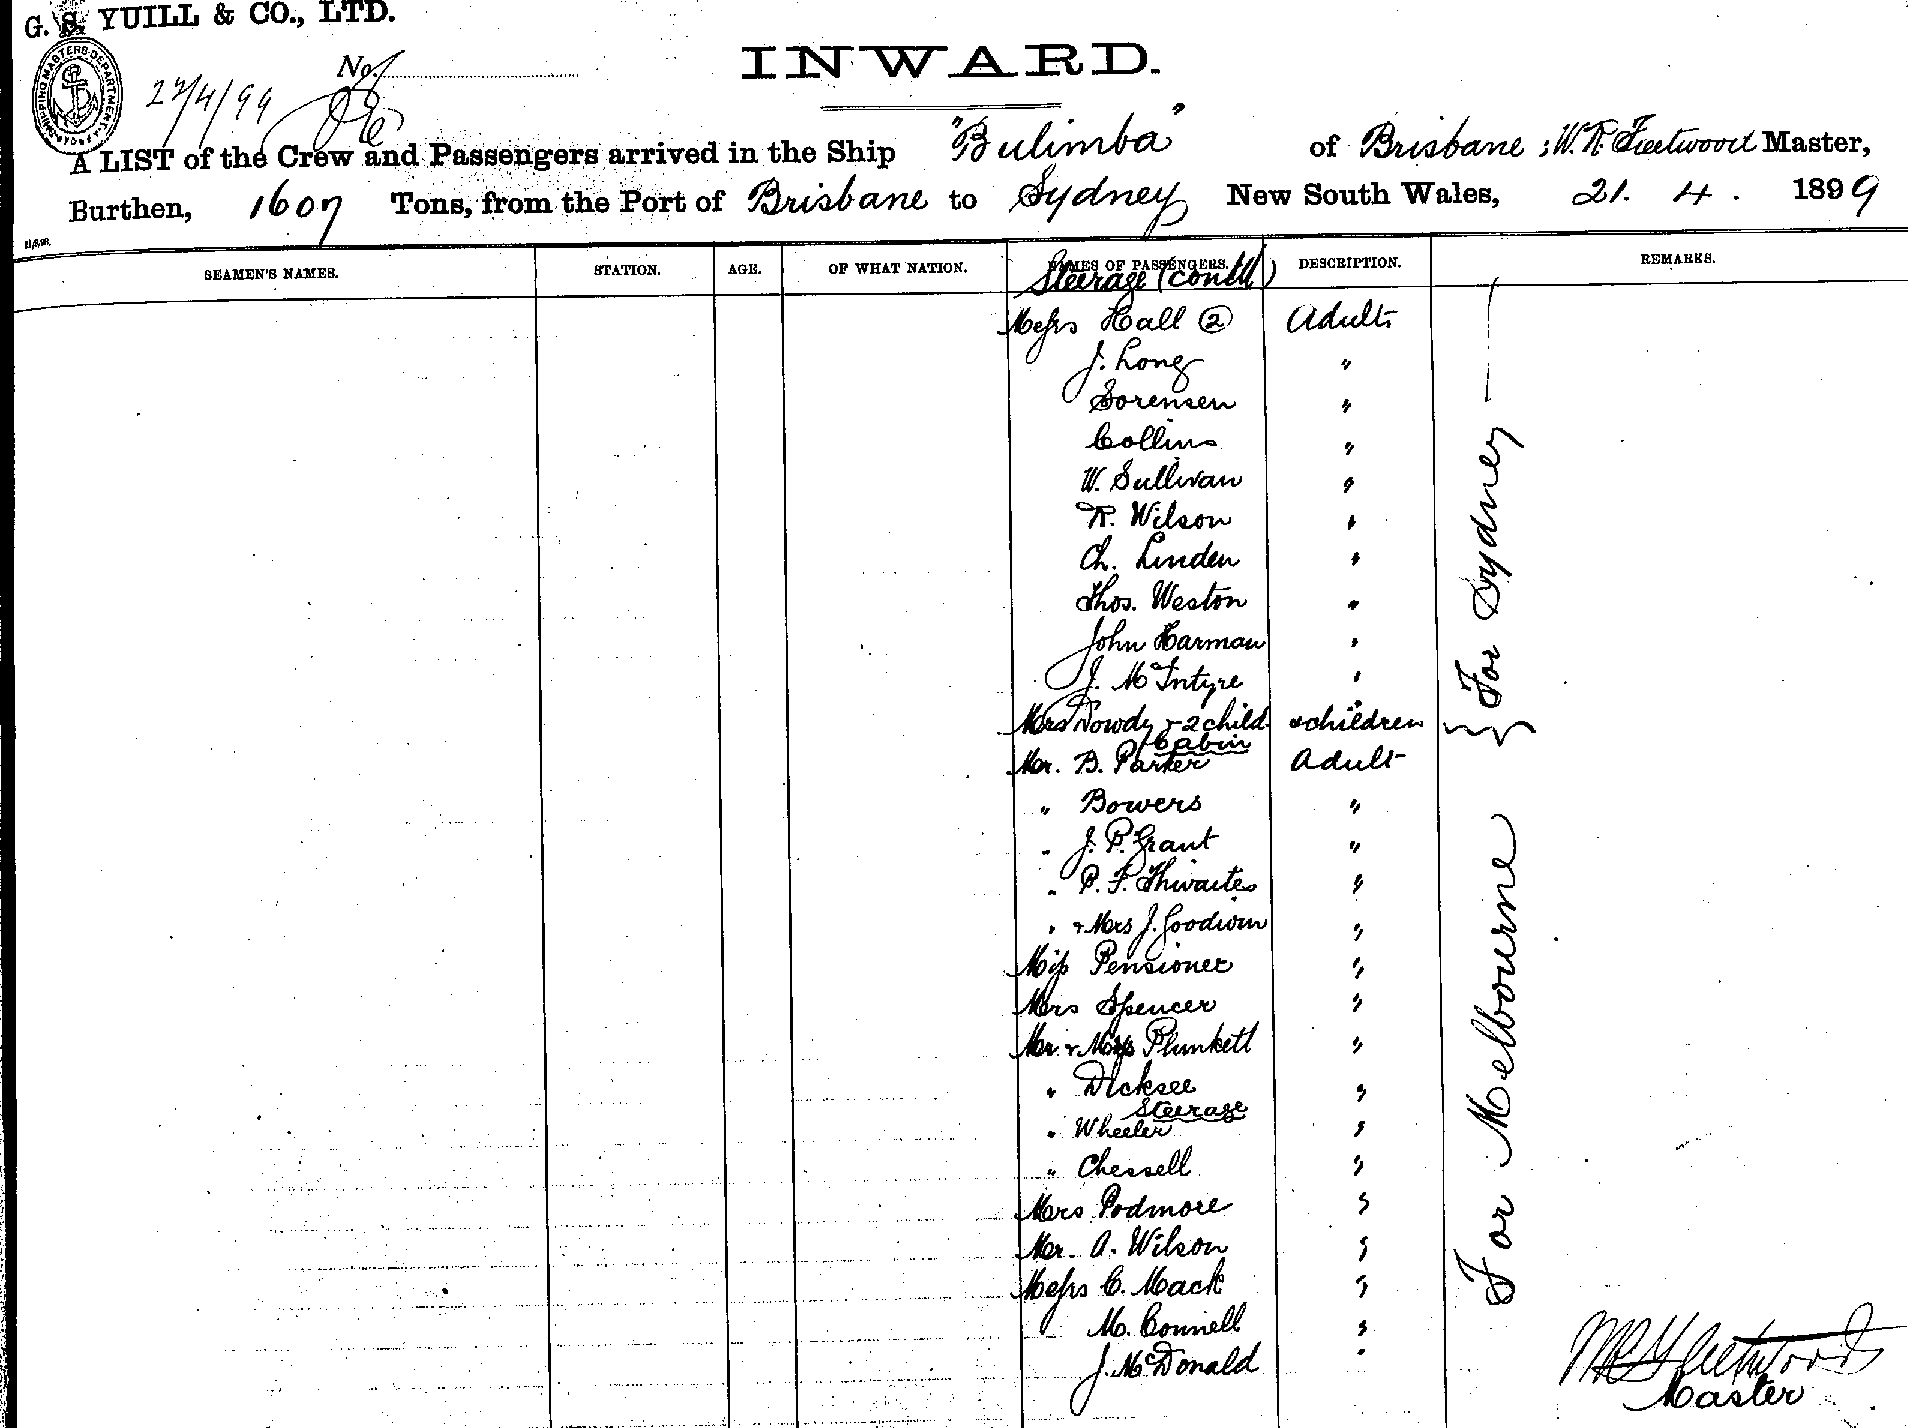 G. S. YUILL & CO., LTD.
INWARD.
SHIPPING MASTERS DEPARTMENT
No.
27/4/99
A LIST of the Crew and Passengers arrived in the Ship "Bulimba" of Brisbane; W. R. Fleetwood Master,
Burthen, 1607 Tons, from the Port of Brisbane to Sydney New South Wales, 21. 4. 1899
SEAMEN'S NAMES. STATION. AGE. OF WHAT NATION. NAMES OF PASSENGERS. DESCRIPTION. REMARKS.
Steerage (contd)
Messrs Hall (2) Adults
J. Long "
Sorensen "
Collins "
W. Sullivan "
R. Wilson "
Ch. Linden "
Thos. Weston "
John Harman "
J. McIntyre "
Mrs Dowdy & 2 child. & children
For Sydney
Cabin
Mr. B. Parker Adult
" Bowers "
" J. P. Grant "
" P. F. Thwaites "
" & Mrs J. Goodwin "
Miss Pensioner "
Mrs Spencer "
Mr. & Mrs Plunkett "
" Dicksee "
Steerage
" Wheeler "
" Chessell "
Mrs Podmore "
Mr. A. Wilson "
Messrs C. Mack "
M. Connell "
J. McDonald "
For Melbourne
W R Fleetwood
Master